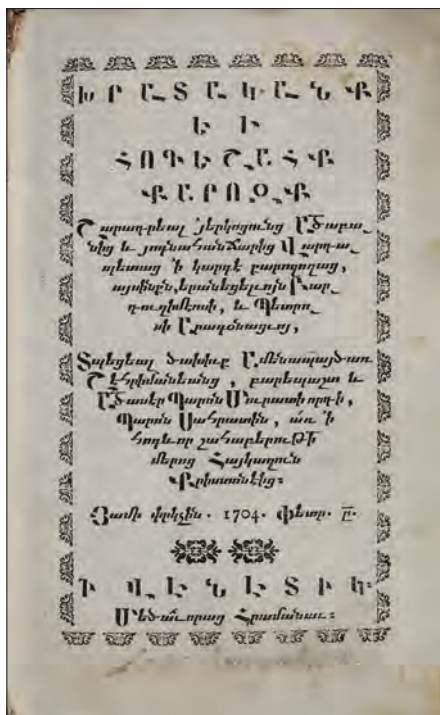 ԽՐԱՏԱԿԱՆՔ
ԵՒ
ՀՈԳԵՇԱՀՔ
ՔԱՐՈԶՔ
Շարադրեալ յերկոցունց ԱԾաբա֊
նից և յոգնահանճարից Վարդա֊
պետաց ՚ի կարգէ քարոզողաց,
այսինքն, երանեցելոյն Բար֊
դուղիմէոսի, և Պետրո֊
սի Արագօնացւոյ,
Տպեցեալ ծախիւք Ամենապայծառ
Շէհրիմանեանց, բարեպաշտ և
ԱԾասէր Պարոն Մուրատի որդի,
Պարոն Սահրատին, առ ՚ի
հոգևոր շահաբերութի
մերոց Հայկազուն
Քրիստոնէից։
Յամի փրկչին. 1704. փետր. Ը.
Ի ՎԷՆԷՏԻԿ։
Մեծաւորաց Հրամանաւ։